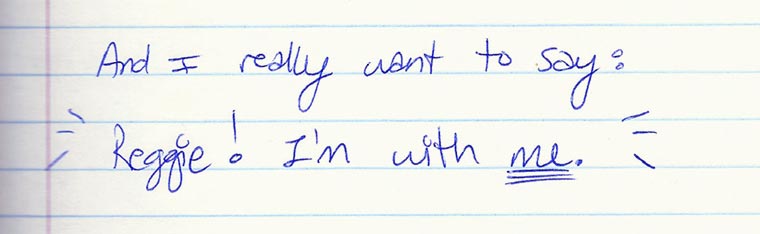 And I really want to say:
Reggie! I'm with me.